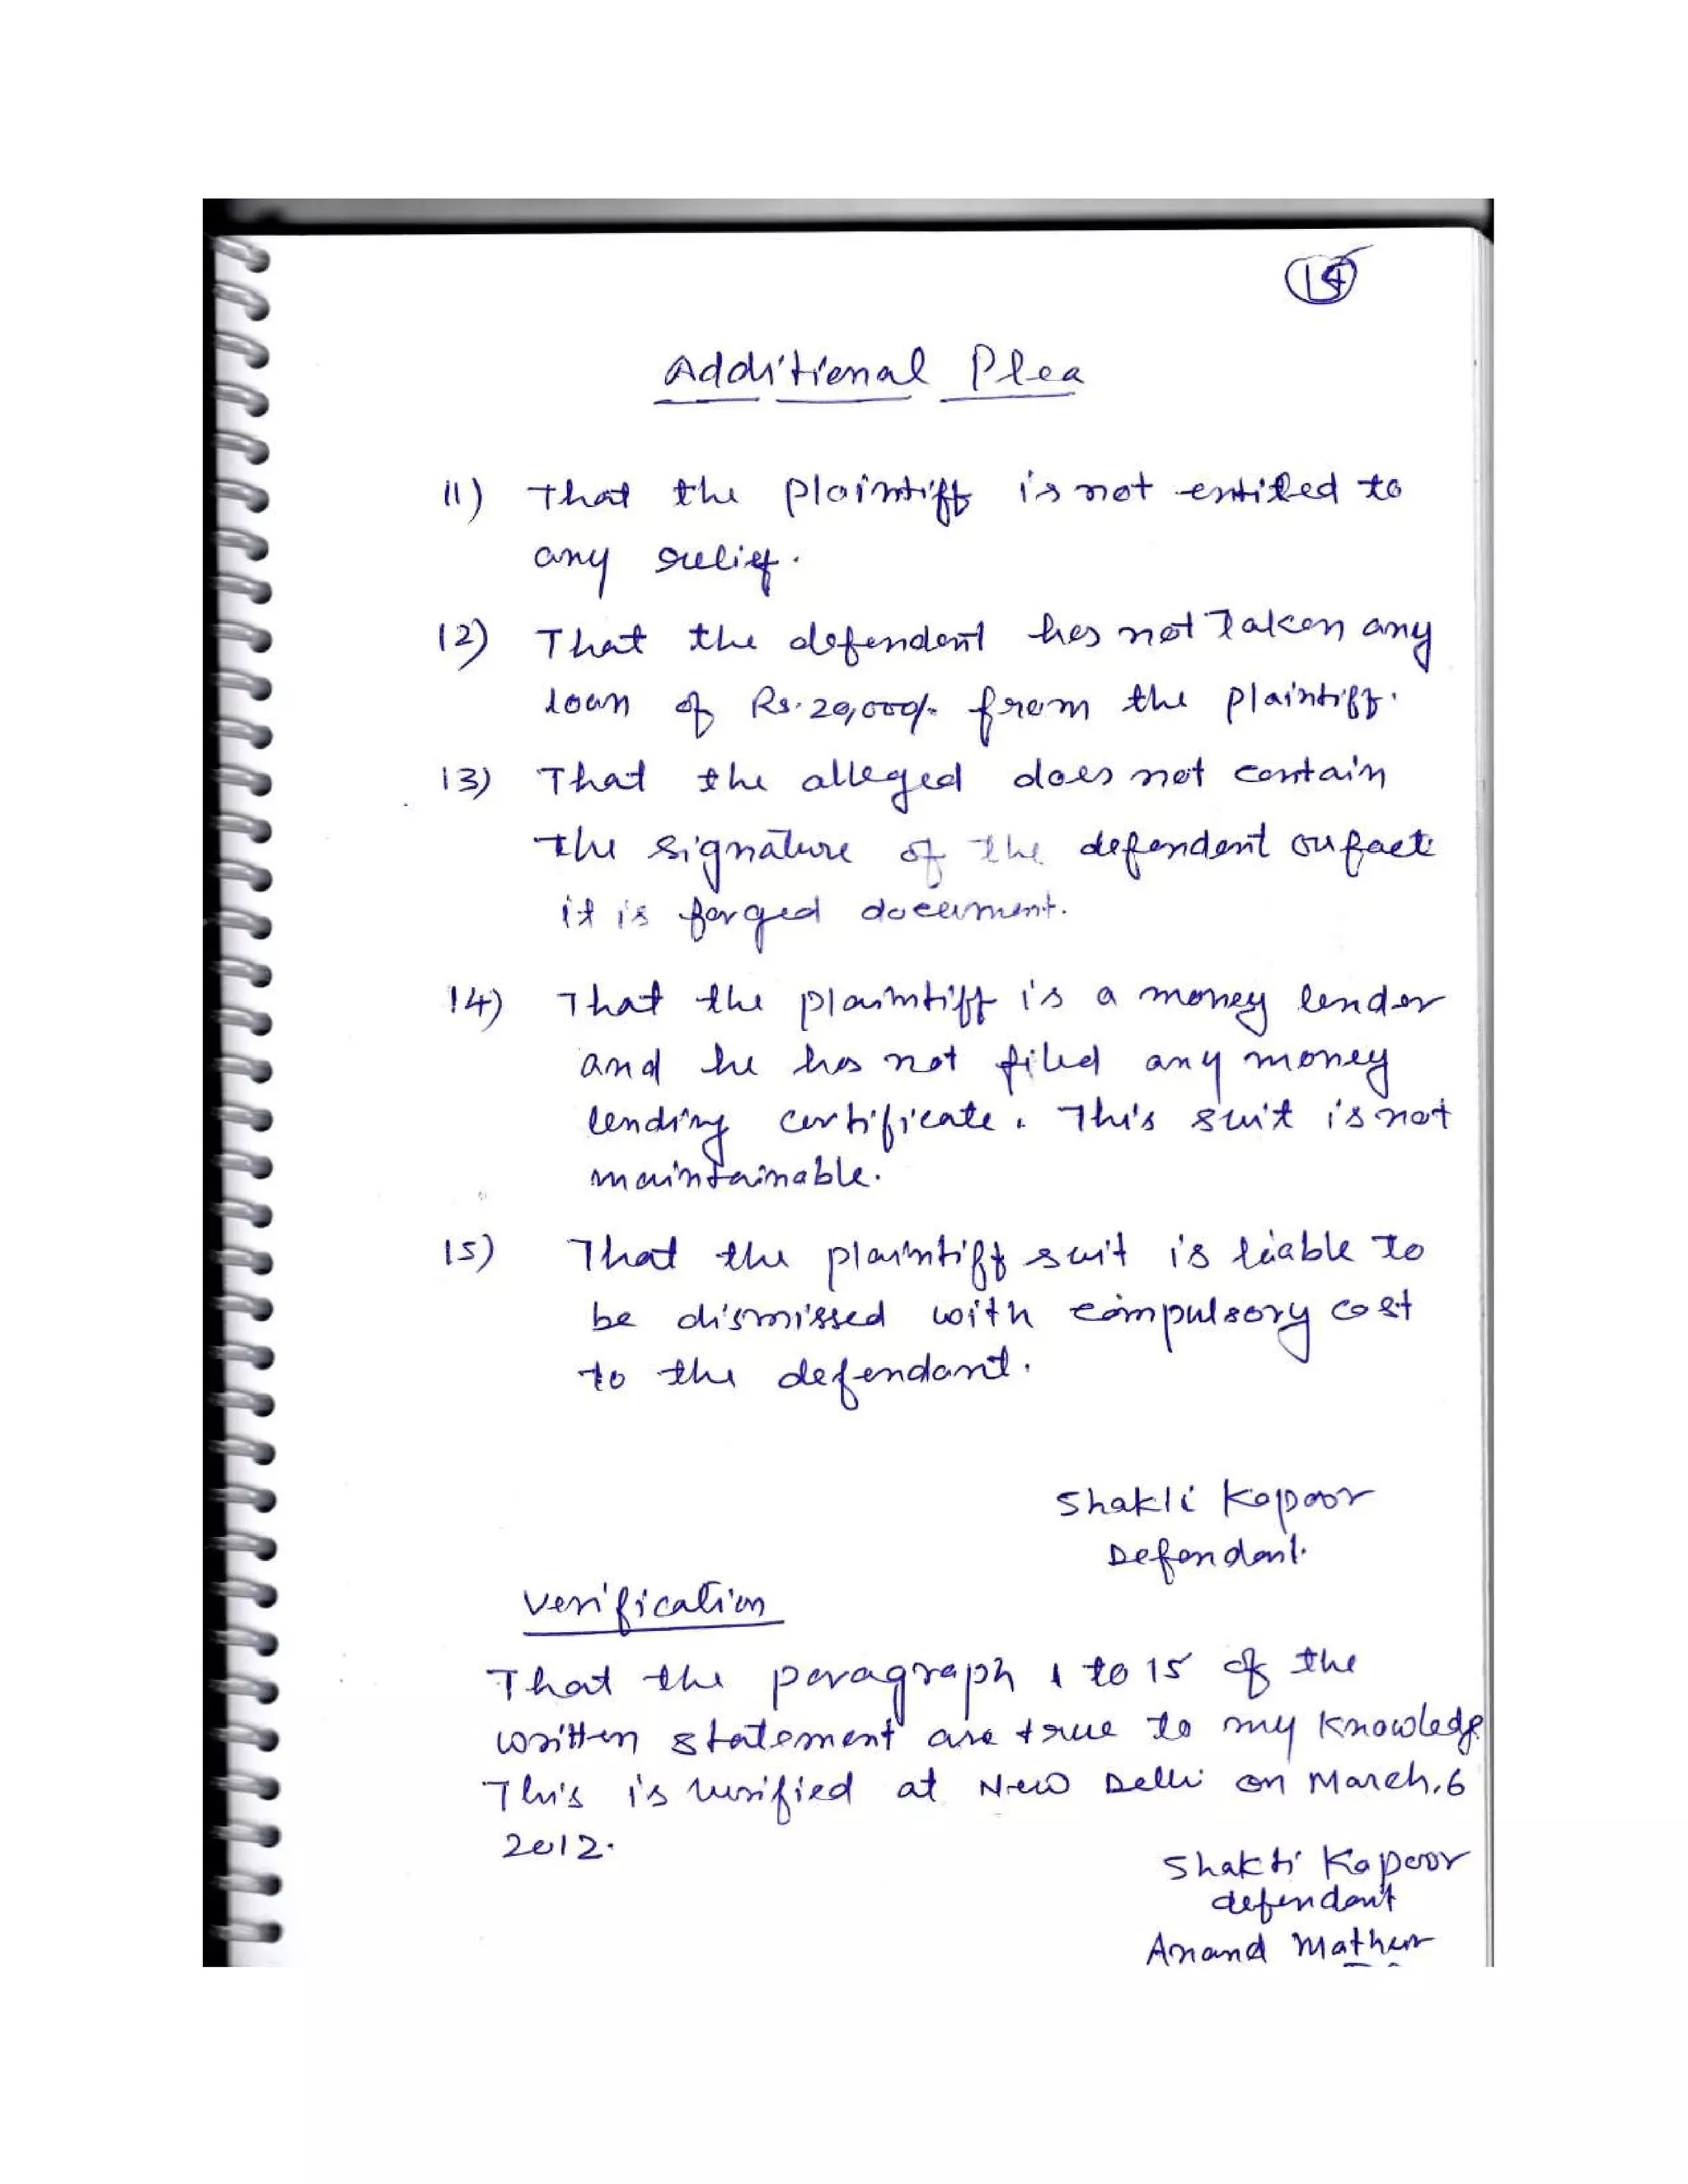 Additional Plea
11) That the plaintiff is not entitled to
any relief.
12) That the defendent has not Taken any
loan of Rs. 20,000/- from the plaintiff.
13) That the alleged does not contain
the signature of the defendent fact
it is forged document.
14) That the plaintiff is a money lender
and he has not filed any money
lending certificate. This suit is not
maintainable.
15) That the plaintiff suit is liable to
be dismissed with compulsory cost
to the defendant.
Shakti Kapoor
Defendant.
Verification
That the paragraph 1 to 15 of the
written statement are true to my Knowledge
This is verified at New Delhi on March, 6
2012.
Shakti Kapoor
defendant
Anand Mathur